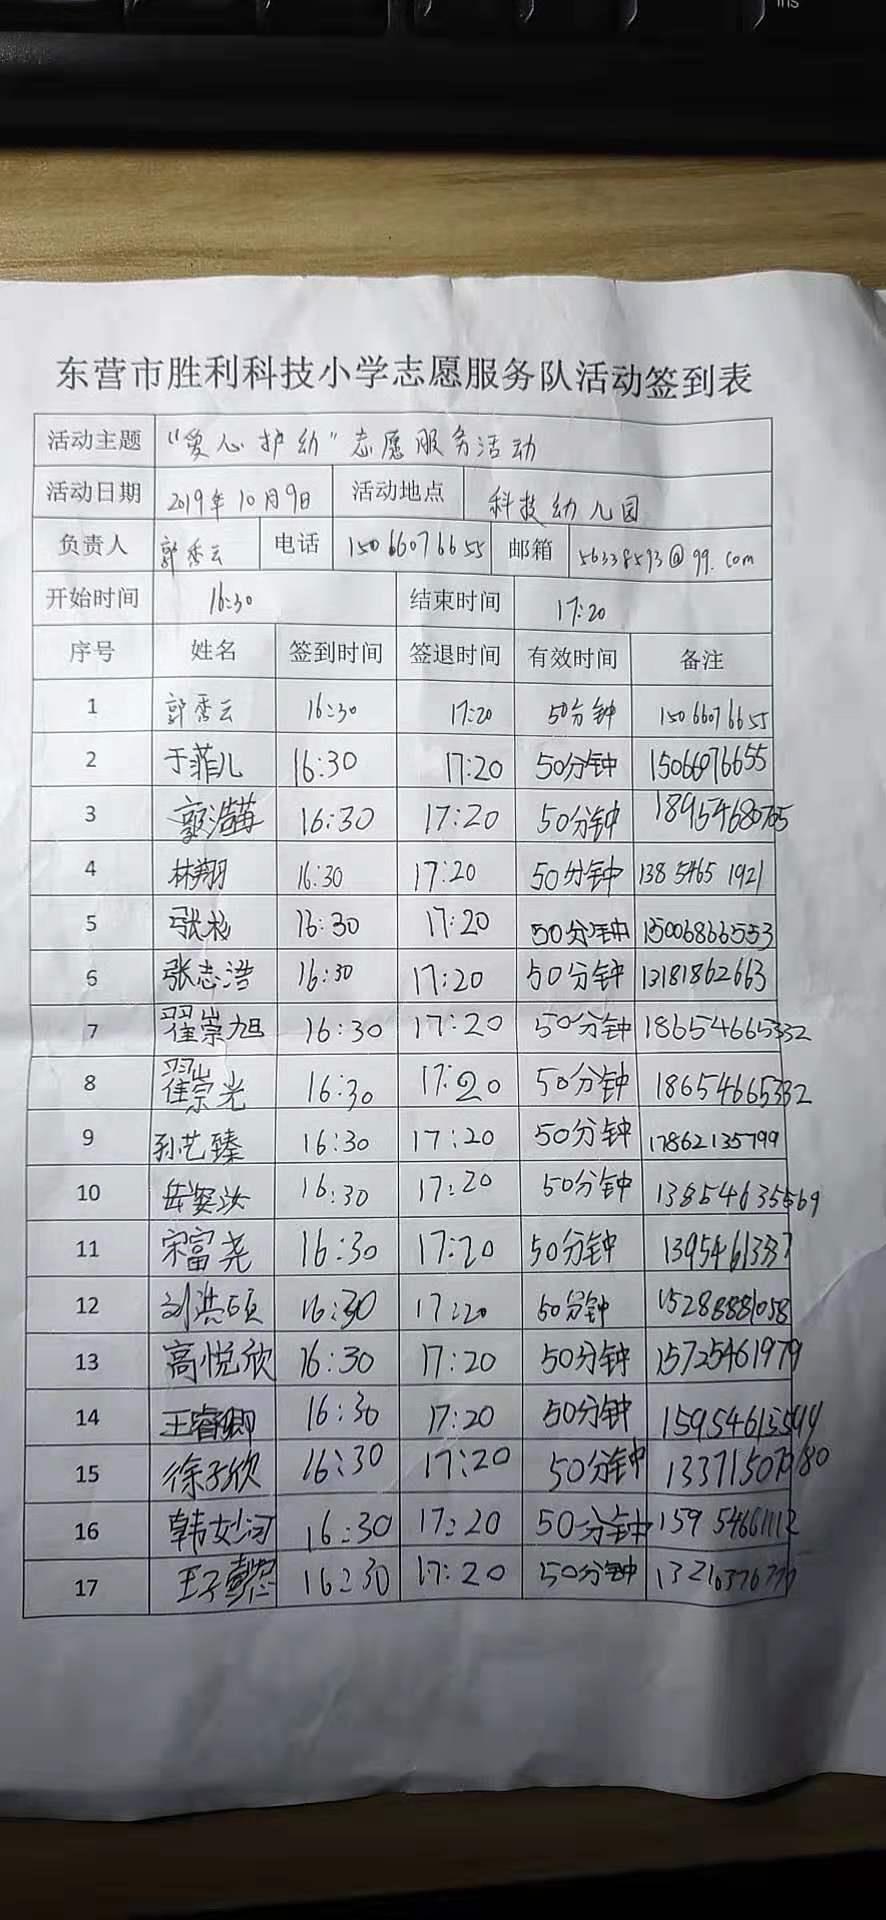 ins
东营市胜利科技小学志愿服务队活动签到表
活动主题 “爱心护幼”志愿服务活动
活动日期 2019年10月9日 活动地点 科技幼儿园
负责人 郭秀云 电话 15066076655 邮箱 56338593@qq.com
开始时间 16:30 结束时间 17:20
序号 姓名 签到时间 签退时间 有效时间 备注
1 郭秀云 16:30 17:20 50分钟 15066076655
2 于菲儿 16:30 17:20 50分钟 15066076655
3 16:30 17:20 50分钟
4 林翔 16:30 17:20 50分钟 138 5465 1921
5 16:30 17:20 50分钟 15006866553
6 张志浩 16:30 17:20 50分钟 13181862663
7 翟崇旭 16:30 17:20 50分钟 18654665332
8 翟崇光 16:30 17:20 50分钟 18654665332
9 孙艺臻 16:30 17:20 50分钟 17862135799
10 岳姿汝 16:30 17:20 50分钟 13854635569
11 宋富尧 16:30 17:20 50分钟
12 刘洪硕 16:30 17:20 50分钟 15288881058
13 高悦欣 16:30 17:20 50分钟 15725461979
14 王睿卿 16:30 17:20 50分钟
15 徐子欣 16:30 17:20 50分钟
16 韩妙可 16:30 17:20 50分钟 159 54661112
17 16:30 17:20 50分钟